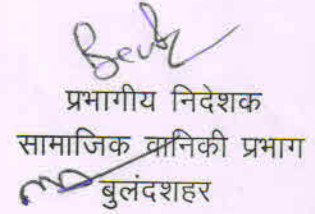 प्रभागीय निदेशक
सामाजिक वानिकी प्रभाग
बुलंदशहर